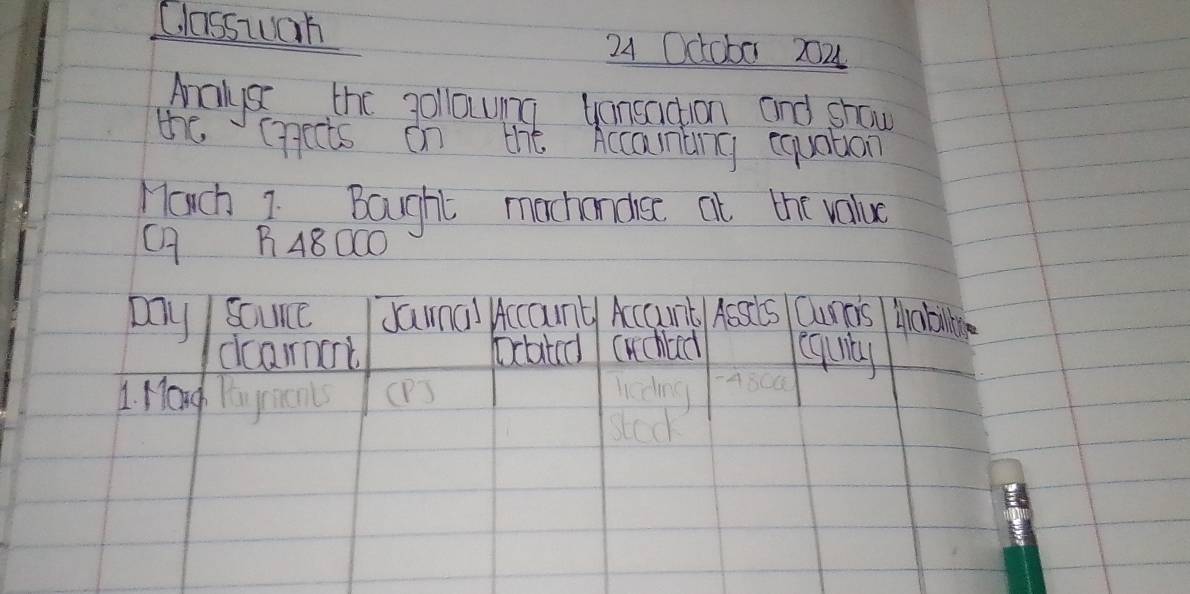 Classwork
24 October 2024
Analyse the following transaction and show
the effects on the Accounting equation
March 1. Bought merchandise at the value
of R 48 000
Day Source document Journal Account Debited Account Credited Assets Owner's equity Liabilities
1. March Payments CPJ Trading Stock -48000